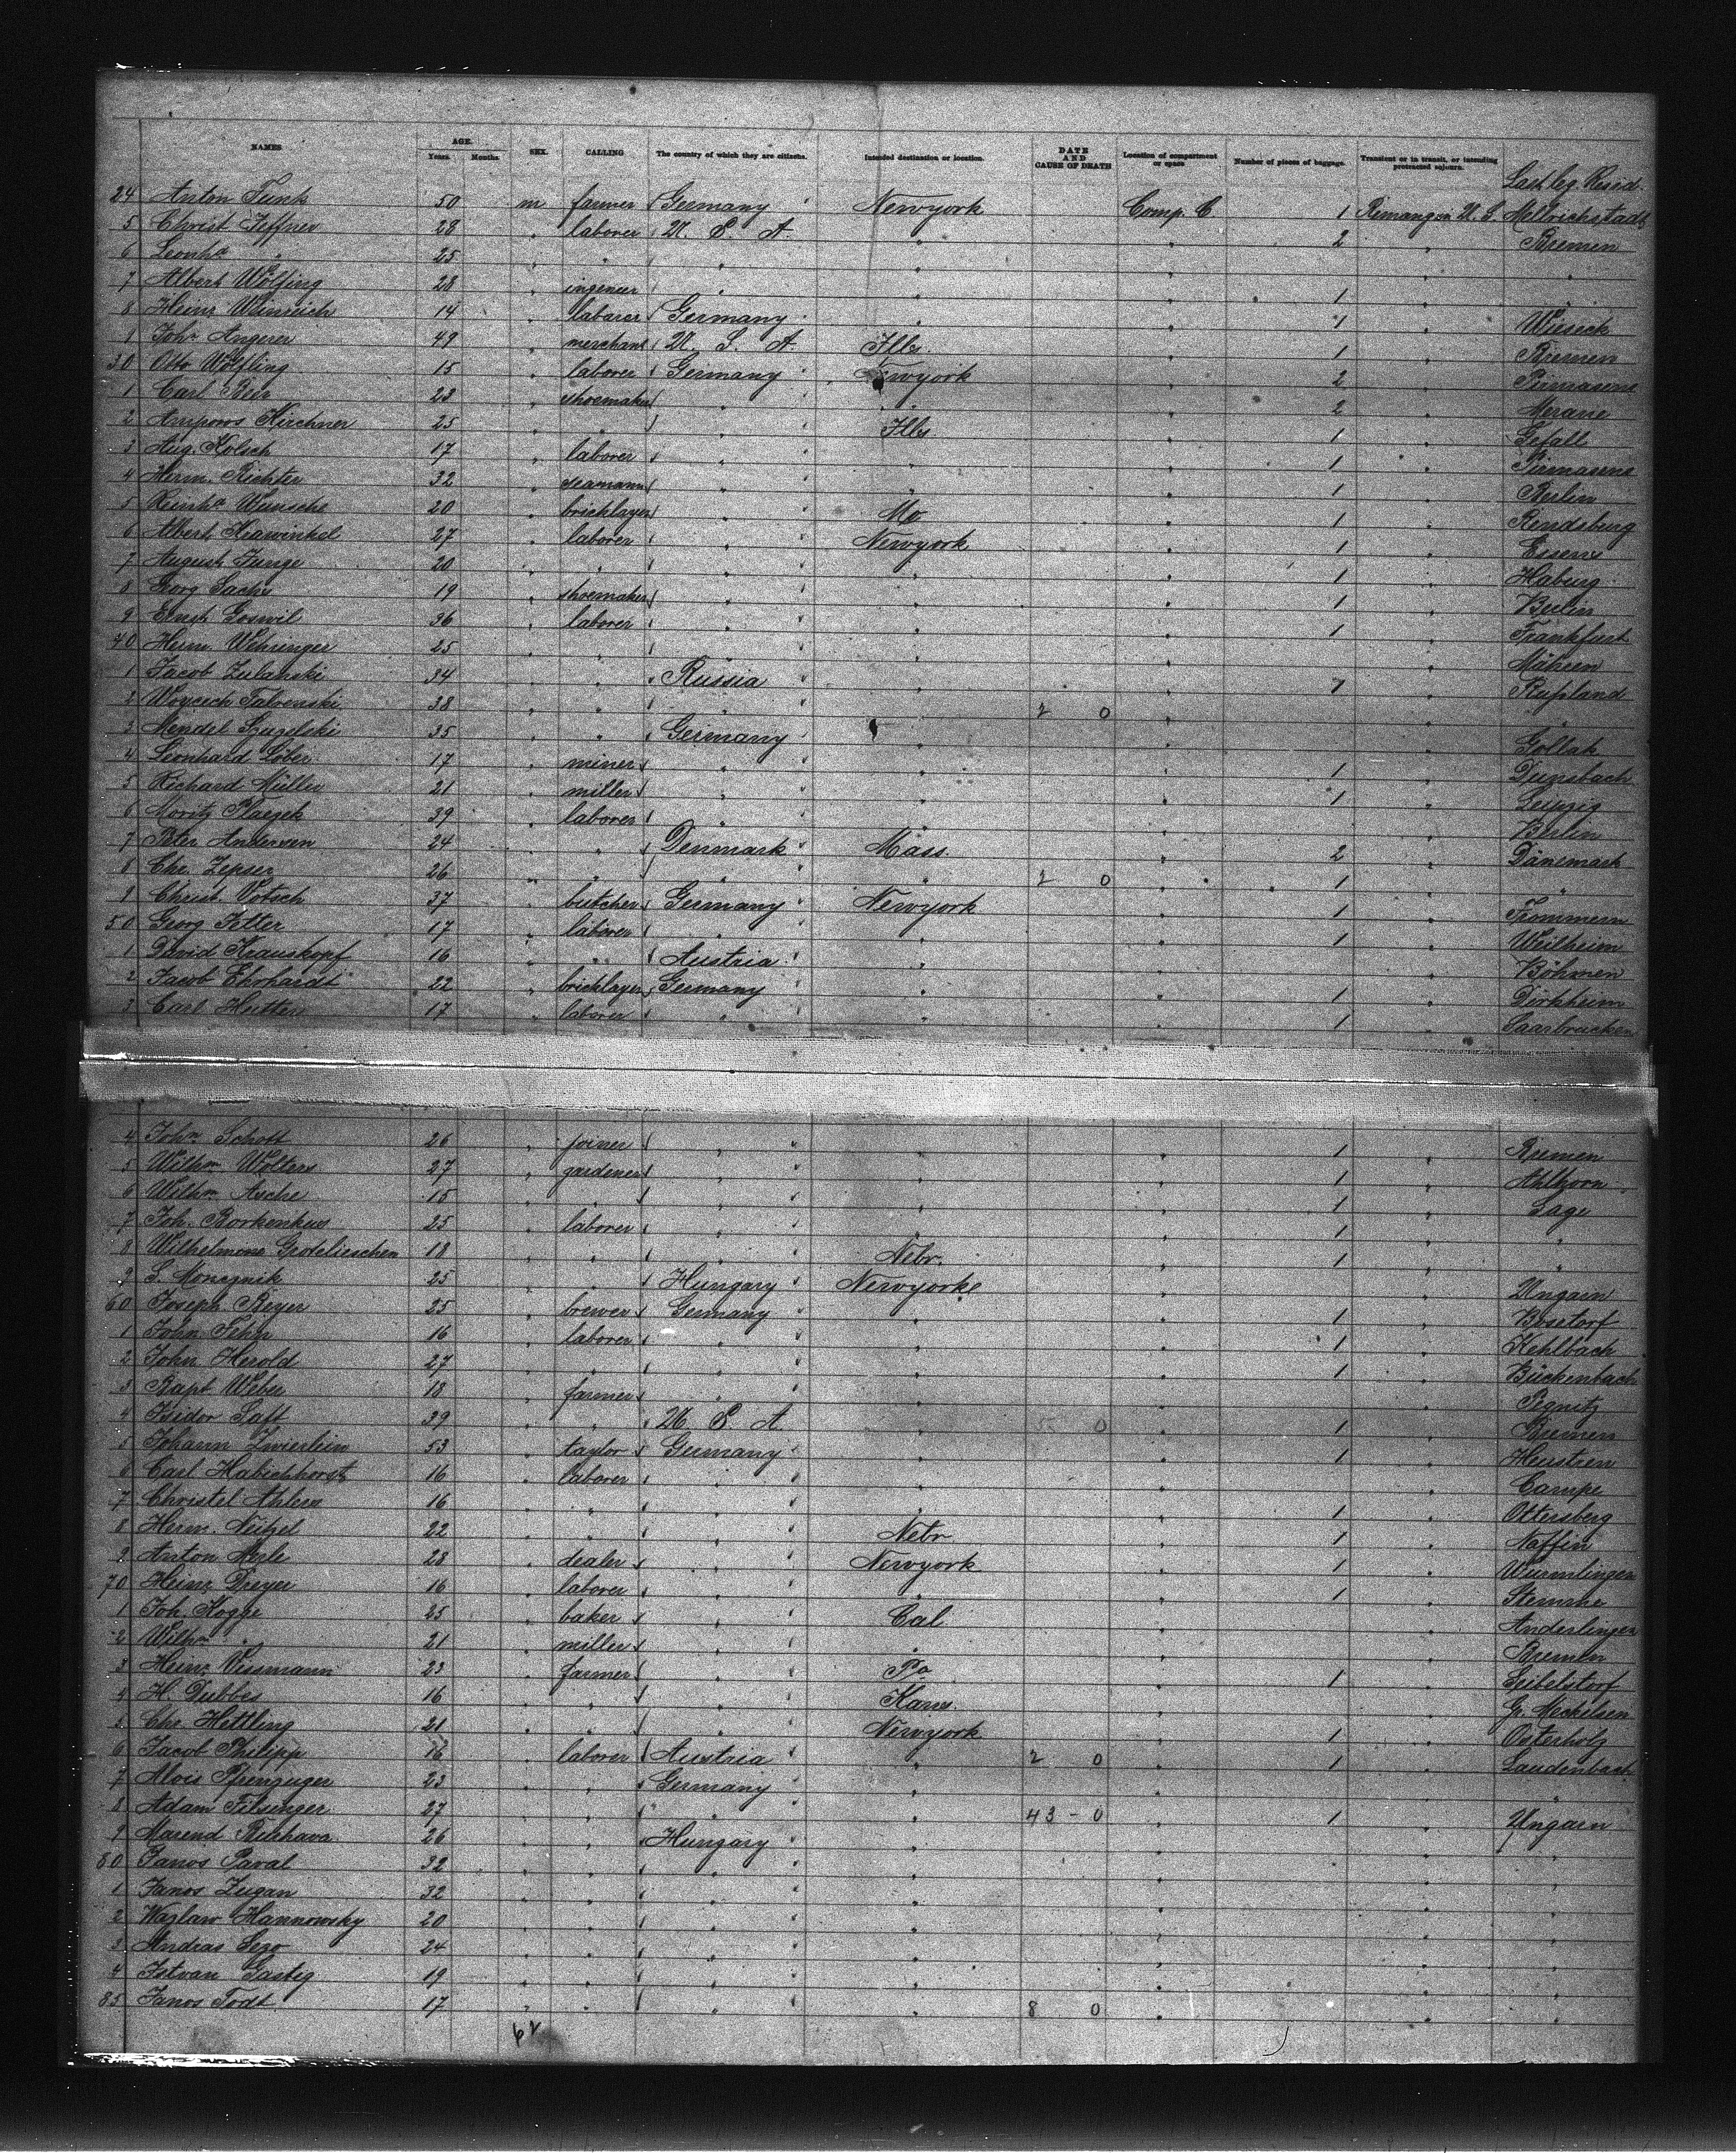 NAMES AGE. Years. Months. SEX. CALLING The country of which they are citizens. Intended destination or location. DATE AND CAUSE OF DEATH Location of compartment or space Number of pieces of baggage. Transient or in transit, or intending protracted sojourn. Last leg. Resid.
24 Anton Funk 50 m farmer Germany Newyork Comp. C 1 Mellrichstadt
5 Christ Jeffner 28 " laborer U. S. A. " " 2 " Bremen
6 Leonhd " 25 " " " " " " "
7 Albert Wölfing 28 " ingeneer " " " 1 " "
8 Heinr. Weinreich 14 " laborer Germany " " 1 " Wieseck
1 Johr Angerer 49 " merchant U. S. A. Ills. " 1 " Bremen
30 Otto Wölfling 15 " laborer Germany Newyork " 2 " Pirmasens
1 Carl Beir 23 " shoemaker " " " 2 " Merane
2 Kirchner 25 " " " Ills " 1 " Gefall
3 Aug. Kölsch 17 " laborer " " " 1 " Pirmasens
4 Herm. Richter 32 " seamann " " " 1 " Berlin
5 Reinhd Wünsche 20 " bricklayer " Mo " 1 " Rendsburg
6 Albert Krawinkel 27 " laborer " Newyork " 1 " Essen
7 August Junge 20 " " " " " 1 " Haburg
8 Georg Sachs 19 " shoemaker " " " 1 " Berlin
9 Ernst Goswil 36 " laborer " " " 1 " Frankfurt
40 Herm. Wehringer 25 " " " " " " Mähren
1 Jacob Zulanski 34 " " Russia " " 1 " Rußland
2 Woycech 38 " " " " 2 0 " " "
3 Mendel 35 " " Germany " " " Gollah
4 Leonhald Löber 17 " miner " " " 1 " Dunsbach
5 Richard Müller 21 " miller " " " 1 " Leipzig
6 Moritz Placzek 39 " laborer " " " " Berlin
7 Peter Andersen 24 " " Denmark Mass. " 2 " Dänemark
8 Chr. Jepsen 26 " " " " 2 0 " 1 " "
9 Christ. Votsch 37 " butcher Germany Newyork " 1 " Frommern
50 Georg Jetter 17 " laborer " " " 1 " Weilheim
1 David Krauskopf 16 " " Austria " " " Böhmen
2 Jacob Ehrhardt 22 " bricklayer Germany " " 1 " Dirkheim
3 Carl Hutter 17 " laborer " " " 1 " Saarbrucken
4 Johr Schott 26 " joiner " " " 1 " Bremen
5 Wilhm Wolters 27 " gardener " " " 1 " Ahlhorn
6 Wilhm Asche 15 " " " " " 1 " Sage
7 Joh. Borkenhus 25 " laborer " " " 1 " "
8 Wilhelmine Grotelieschen 18 " " " Nebr. " 1 " "
9 S. Moncznik 25 " " Hungary Newyorke " " Ungarn
60 Joseph Beyer 25 " brewer Germany " " 1 " Bosetorf
1 John Fehn 16 " laborer " " " 1 " Kehlbach
2 John Herold 27 " " " " " 1 " Bückenbach
3 Bapt. Weber 18 " farmer " " " " Pegnitz
4 Isidor Saft 39 " " U. S. A. " 0 " 1 " Bremen
5 Johann Zwierlein 53 " taylor Germany " " 1 " Heustren
6 Carl Habichhorst 16 " laborer " " " " Campe
7 Christel Ahlers 16 " " " " " 1 " Ottersberg
8 Herm. Neitzel 22 " " " Nebr " 1 " Naffin
9 Anton Merle 28 " dealer " Newyork " 1 " Wurmlingen
70 Heinr. Dreyer 16 " laborer " " " 1 " Stemshe
1 Joh. Kogge 25 " baker " Cal " " Anderlingen
2 Wilhm " 21 " miller " " " " Bremen
3 Heinr. Vissmann 23 " farmer " Pa " 1 " Seibelstorf
4 H. Dubbes 16 " " " Kans. " " Gr. Meckelsen
5 Chr. Hettling 21 " " " Newyork " 1 " Osterholz
6 Jacob Philipp 16 " laborer Austria " 2 0 " 1 " Laudenbach
7 Alois Pfrenzuger 23 " " Germany " " " "
8 Adam Filsinger 27 " " " " 43 - 0 " 1 " Ungarn
9 26 " " Hungary " " " "
80 Janos Paval 32 " " " " " " "
1 Janos Zugan 32 " " " " " " "
2 Wazlaw Hannowsky 20 " " " " " " "
3 Andras 24 " " " " " " "
4 Istvan Gasteg 19 " " " " " " "
85 Janos Todt 17 " " " " 8 0 " " "
62